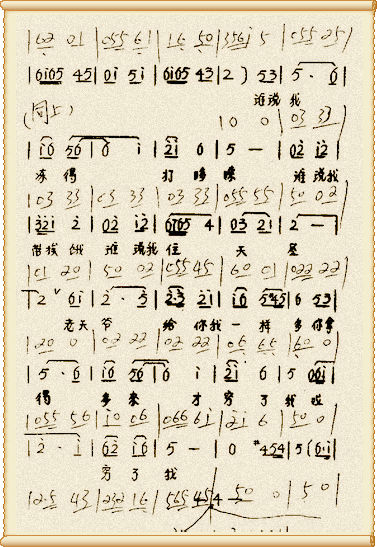 055 61 | 16 50 | 3561 5 | 055 25 |
| 6165 45 | 01 51 | 6165 43 | 2 ) 53 | 5 · 6 |
谁说我
(同上) | 0 0 | 03 33 |
| 16 56 | 6 1 | 21 6 | 5 — | 02 12 |
冻得 打哆嗦 谁说我
| 03 33 | 03 33 | 03 33 | 055 55 | 50 02 |
| 321 2 | 02 12 | 6165 4 | 03 21 | 2 — |
饿 谁说我住 天
| 01 20 | 50 02 | 455 45 | 60 01 | 022 22 |
2 61 | 2 · 3 | 2·3 21 | 16 5#45 | 6 53 |
老天爷 给 你我一样 多 你拿
| 20 0 | 02 22 | 02 22 | 05 65 | 60 0 |
| 5 · 6 | 16 56 | 6 1 | 21 6 | 5 061 |
得 多来 才 穷了我
| 055 56 | 10 06 | 066 61 | 21 6 | 50 0 |
| 2 · 1 | 62 16 | 5 — | 0 #454 | 5 (6·1 |
穷了我
43 | 232 16 | 565 454 50 0 | 5 0 |